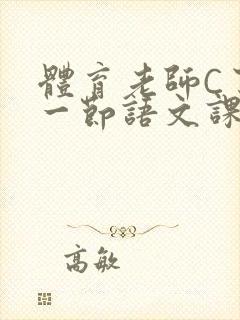 體育老師C了
一節語文課
高敏